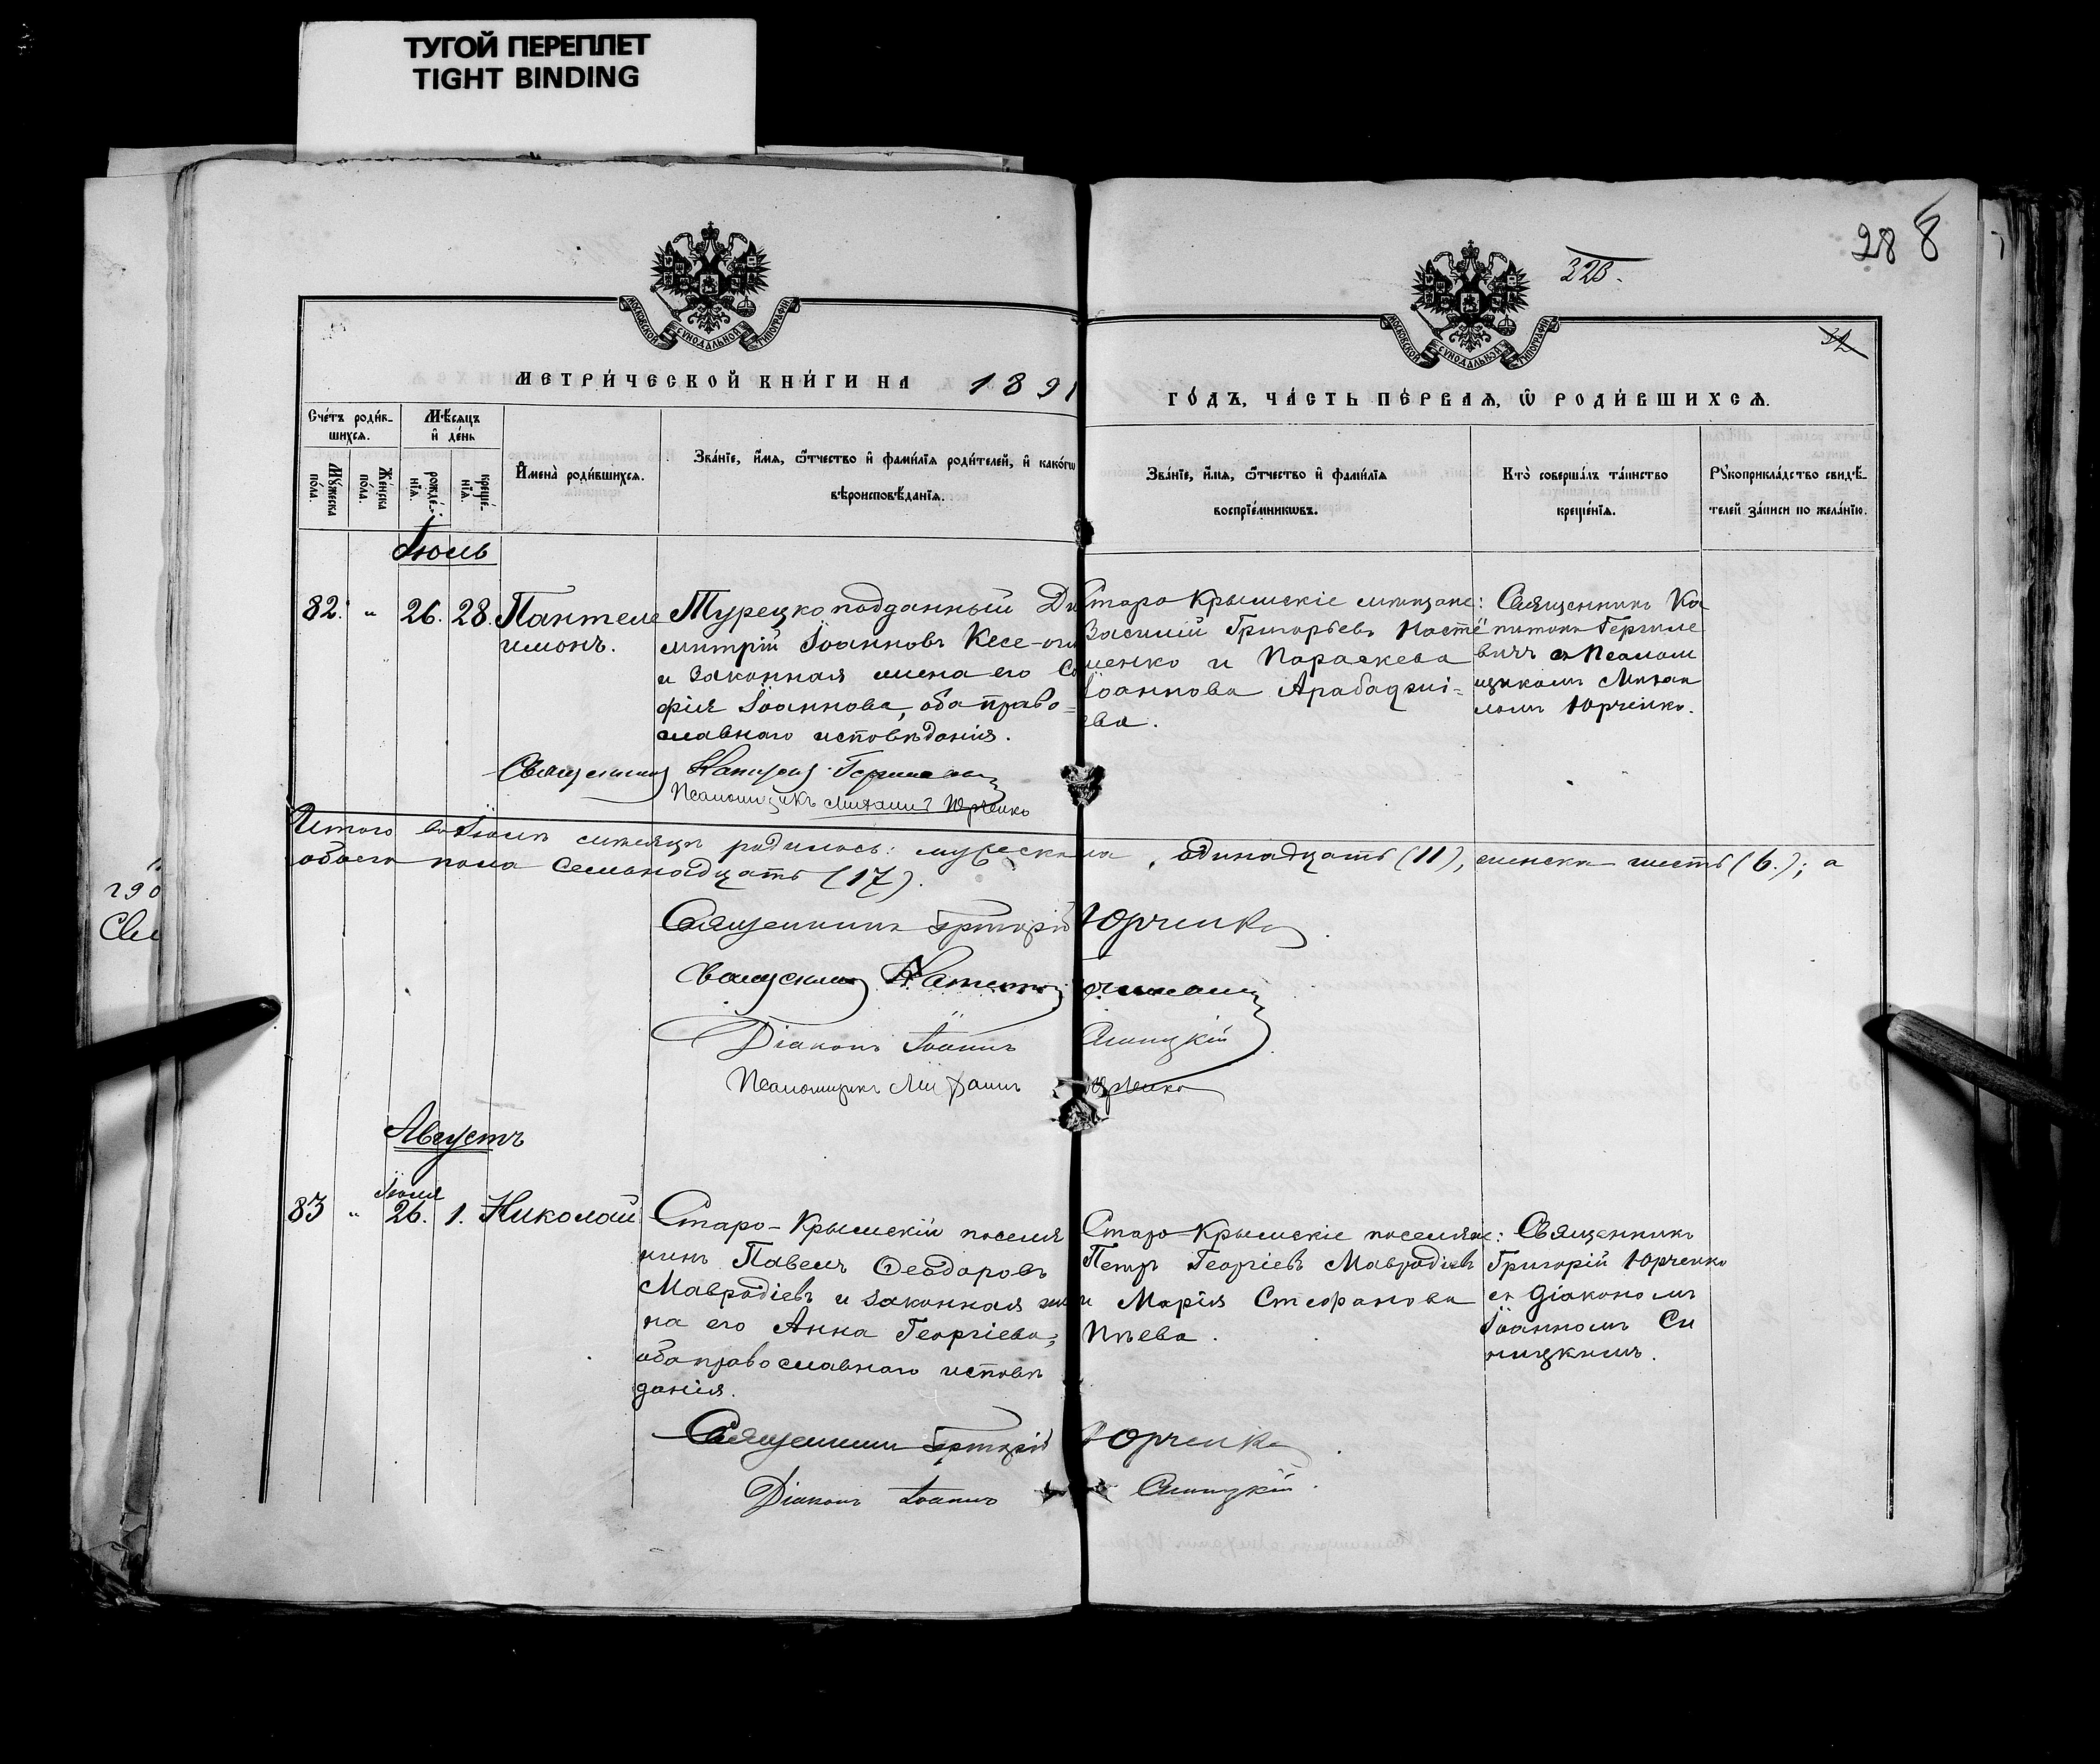 ТУГОЙ ПЕРЕПЛЕТ
TIGHT BINDING
288
328.
32
МОСКОВСКОЙ СѴНОДАЛЬНОЙ ТИПОГРАФІИ
МОСКОВСКОЙ СѴНОДАЛЬНОЙ ТИПОГРАФІИ
МЕТРИ́ЧЕСКОЙ КНИ́ГИ НА 1891
ГО́ДЪ, ЧА́СТЬ ПЕ́РВАѦ, Ѡ҆ РОДИ́ВШИХСѦ.
Сче́тъ роди́в-
шихсѧ.
Мѣ́сѧцъ
и҆ де́нь
Мꙋ́жеска
по́ла.
Же́нска
по́ла.
рожде́-
нїѧ.
креще́-
нїѧ.
И҆мена̀ роди́вшихсѧ.
Зва́нїе, и҆́мѧ, ѻ҆́тчество и҆ фами́лїѧ роди́телей, и҆ како́гѡ
вѣроисповѣ́данїѧ.
Зва́нїе, и҆́мѧ, ѻ҆́тчество и҆ фами́лїѧ
воспрїе́мникѡвъ.
Кто̀ соверша́лъ та́инство
креще́нїѧ.
Рꙋкоприкла́дство свидѣ́-
телей за́писи по жела́нїю.
Іюль
82. " 26. 28. Пантеле
имонъ.
Турецко подданный Ди
митрій Іоанновъ Кесе-
и законная жена его Со
фія Іоаннова, оба право=
славнаго исповѣданія.
Старо Крымскіе мѣщане:
Василій Григорьевъ
менко и Параскева
Іоаннова Арабаджі=
ева.
Священникъ Ка
питонъ
вичъ съ Псалом
щикомъ Михаи
ломъ Юрченко.
Священникъ Капитонъ
Псаломщикъ Михаилъ Юрченко
Итого въ Іюлѣ мѣсяцѣ родилось: мужеска пола, одинадцать (11), женска шесть (6.); а
обоего пола семьнадцать (17).
Священникъ Григорій Юрченко.
Священникъ Капитонъ
Діаконъ Іоаннъ Синицкій
Псаломщикъ Михаилъ Юрченко
Августъ
Іюля
83 " 26. 1. Николай
Старо-Крымскій поселя
нинъ Павелъ Ѳеодоровъ
Мавродіевъ и законная же
на его Анна Георгіева;
оба православнаго исповѣ
данія.
Старо-Крымскіе поселяне:
Петръ Георгіевъ Мавродіевъ
и Марія Стефанова
Пѣева.
Священникъ
Григорій Юрченко
съ Діакономъ
Іоанномъ Си
ницкимъ.
Священникъ Григорій Юрченко
Діаконъ Іоаннъ Синицкій.
290
Свя